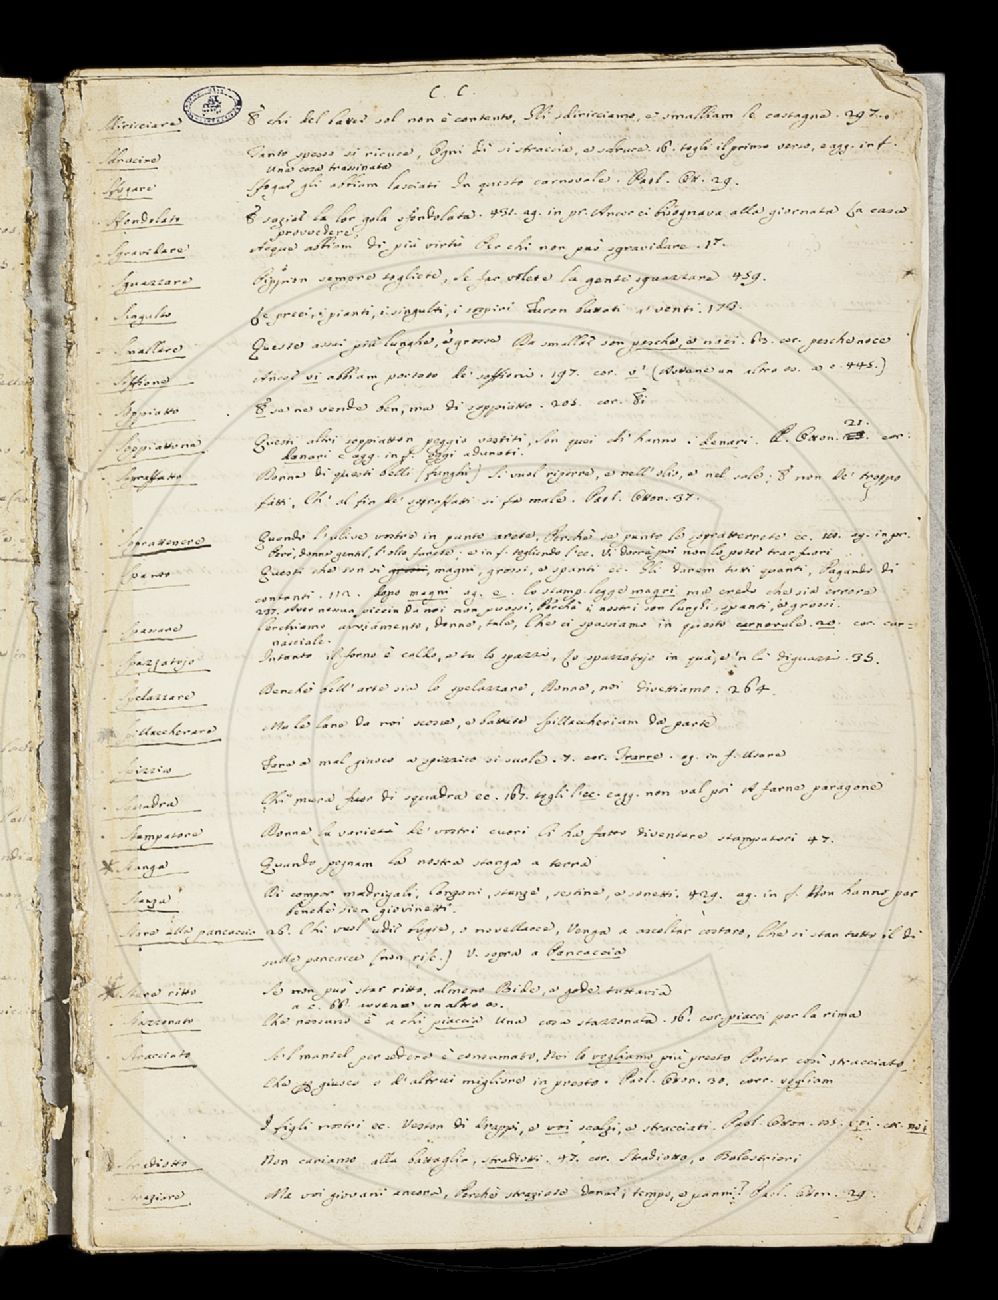 C. C.
chi del lavor sol non è contento, Gli sdiricciamo, e smalliam le castagne. 297.
Sdrucire Tanto spesso si ricuce, Ogni dì si straccia, e sdruce. 16. togli il primo verso, e agg. in f.
Una cosa trassinata
Sfogare Sfogar gli abbiam lasciati In questo carnovale. Paol. Ott. 29.
Sfondolato la lor gola sfondolata. 431. ag. in pr. Ancor ci bisognava alla giornata La casa
provvedere
Sgravidare Acque abbiam di più virtù Per chi non può sgravidare. 17.
Sguazzare sempre togliete, Se far volete la gente sguazzare 459.
Singulto Le preci, i pianti, i singulti, i sospiri Furon buttati a' venti. 173.
Smallare Queste assai più lunghe, e grosse Da smallar son pesche, e noci. 63. cor. pesche noce
Soffione Ancor vi abbiam portato de' soffioni. 197. cor. v' (Avvene un altro es. a c. 445.)
Soppiatto se ne vende ben, ma di soppiatto. 205. cor.
Soppiattone Questi altri soppiatton peggio vestiti, Son quei ch' hanno i denari. P. Otton. 21. cor.
danari e agg. in f. Oggi adunati.
Sopraffatto Donne di questi belli (funghi) Si vuol riporre, e nell' olio, e nel sale; non de' troppo
fatti, Ch' al fin de' sopraffatti si fa male. Paol. Otton. 37.
Soprattenere Quando l' ulive vostre in punto avete, Perchè se punto le soprattenete ec. 100. ag. in pr.
Però, donne gentil, l' olio farete: e in f. togliendo l' ec. Vi dorrè poi non lo poter trar fuori
Spanto Questi che son sì magni, grossi, e spanti ec. Gli darem tutti quanti, Pagando di
contanti. 112. dopo magni ag. e. lo stamp. legge magri ma credo che sia errore
237. Aver nessun piccin da noi non puossi, Perchè i nostri son lunghi spanti, e grossi.
Spassare Cerchiamo avviamento, donne, tale, Che ci spassiamo in questo carnovale. 20. cor. car-
nasciale.
Spazzatojo Intanto il forno è caldo, e tu lo spazzi, Lo spazzatojo in quà, e 'n là diguazzi. 35.
Spelazzare Benchè bell' arte sia lo spelazzare, Donne, noi divettiamo. 264.
Spillaccherare Ma le lane da noi scosse, e battute Spillaccheriam da parte
Spizzico Fare a mal giuoco a spizzico si suole. 7. cor. Trarre. ag. in f. Usare
Squadra Ch' mura fuor di squadra ec. 167. togli l' ec. e agg. non val poi A farne paragone
Stampatore Donne la varietà de' vostri cuori Ci ha fatto diventare stampatori 47.
Stanga Quando pognam la nostra stanga a terra
Stanza Di compor madrigali, Canzoni, stanze, sestine, e sonetti. 429. ag. in f. Non hanno par
benchè sien giovinetti.
Stare alla pancaccia 26. Chi vuol udir bugie, o novellacce, Venga a ascoltar costoro, Che si stan tutto il dì
sulle pancacce (non rife.) V. sopra a Pancaccia
Stare ritto Se non può star ritto, almeno Bide, e gode tuttavia
a c. 66. avvene un altro es.
Stazzonato Che nessuno è a chi piaccia Una cosa stazzonata. 16. cor. piacci per la rima
Stracciato Se 'l mantel per edera è consumato, Noi lo vogliamo più presto Portar così stracciato
Che giuoco o d' altrui migliore in presto. Paol. Otton. 30. corr. vogliam
I figli nostri ec. Veston di drappi, e voi scalzi, e stracciati. Paol. Otton. cor. noi
Stradiotto Non cariamo alla battaglia, stradiotti. 47. cor. Stradiotto, o Balestrieri
Straziare Ma voi giovani ancora, Perchè straziate denar, tempo, e panni? Paol. Otton. 29.